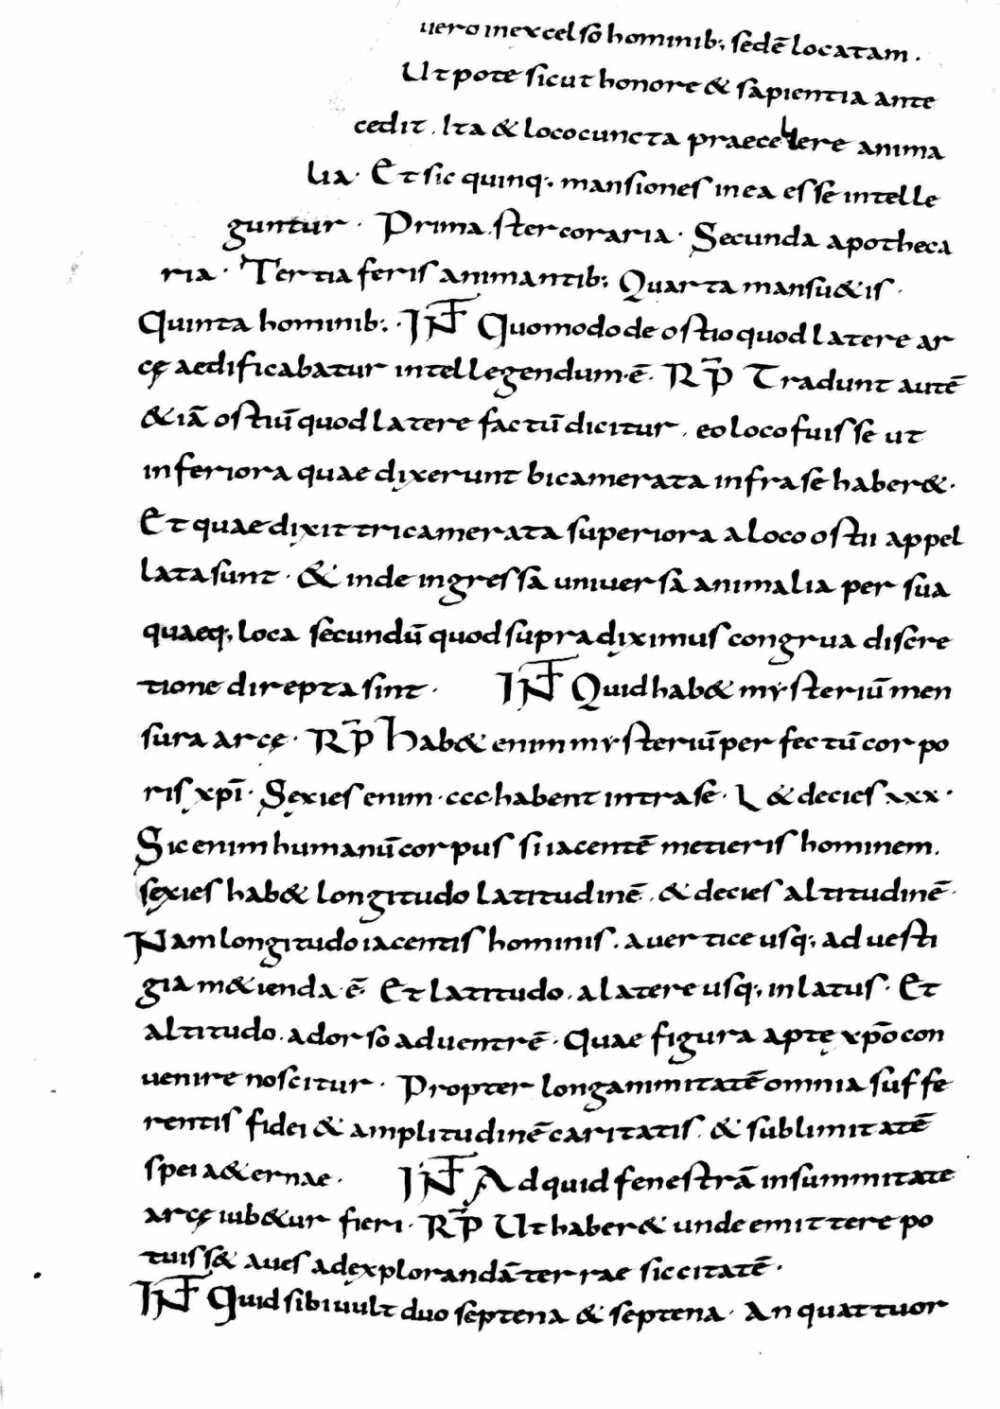 uero in excelso hominib; sedē locatam.
Utpote sicut honore & sapientia ante
cedit. Ita & lococuncta praecellere anima
lia. Et sic quinq; mansiones in ea esse intelle
guntur. Prima stercoraria. Secunda apotheca
ria. Tertia feris animantib; Quarta mansu&is.
Quinta hominib;. INT Quomodo de ostio quod latere ar
cę aedificabatur intellegendum ē. R̄P Tradunt autē
& iā ostiū quod latere factū dicitur. eo loco fuisse ut
inferiora quae dixerunt bicamerata infra se haber&.
Et quae dixit tricamerata superiora a loco ostii appel
lata sunt. & inde ingressa uniuersa animalia per sua
quaeq; loca secundū quod supra diximus congrua discre
tione direpta sint. INT Quid hab& mysteriū men
sura arcę. R̄P Hab& enim mysteriū perfectū corpo
ris xp̄i. Sexies enim ccc habent intra se. L & decies xxx.
Sic enim humanū corpus si iacentē metieris hominem.
sexies hab& longitudo latitudinē. & decies altitudinē.
Nam longitudo iacentis hominis. a uertice usq; ad uesti
gia m&ienda ē. Et latitudo. a latere usq; in latus. Et
altitudo. a dorso ad uentrē. Quae figura aptę xp̄o con
uenire noscitur. Propter longanimitatē omnia suffe
rentis fidei & amplitudinē caritatis. & sublimitatē
spei a&ernae. INT Ad quid fenestrā in summitate
arcę iub&ur fieri. R̄P Ut haber& unde emittere po
tuiss& aues ad explorandā terrae siccitatē.
INT Quid sibi uult duo septena & septena. An quattuor